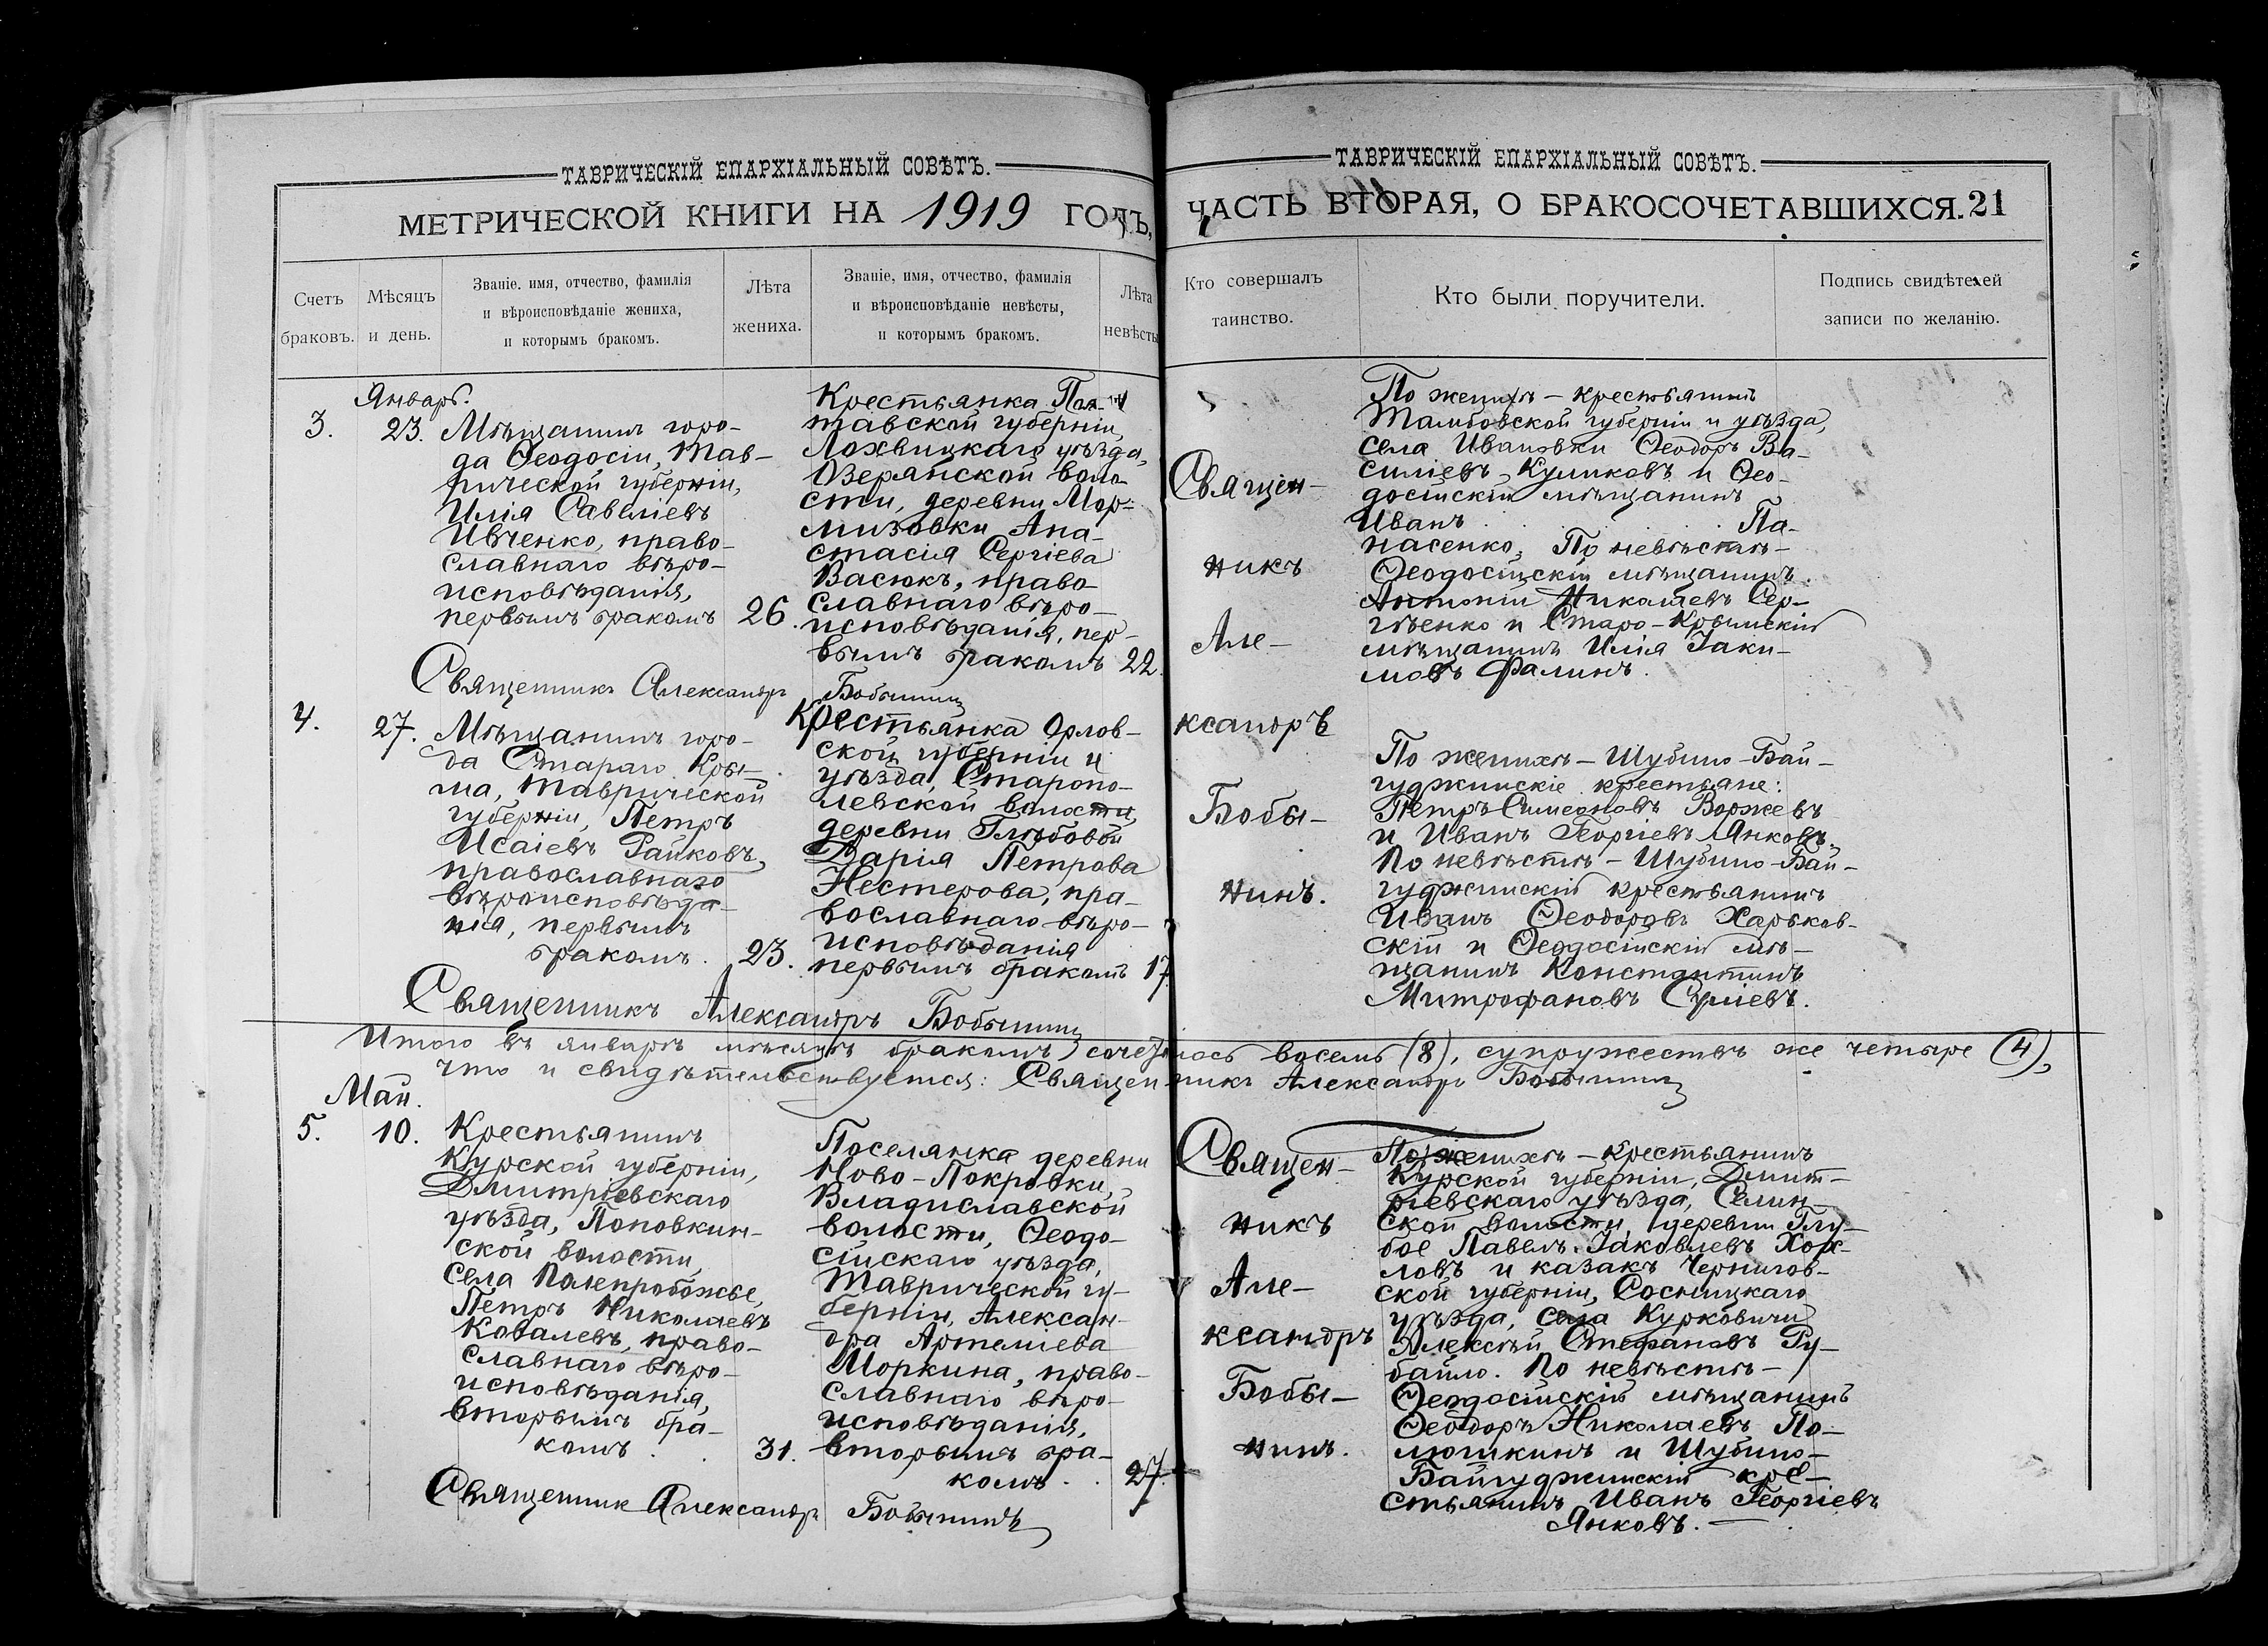 ТАВРИЧЕСКІЙ ЕПАРХІАЛЬНЫЙ СОВѢТЪ.
МЕТРИЧЕСКОЙ КНИГИ НА 1919 ГОДЪ,
Счетъ браковъ.
Мѣсяцъ и день.
Званіе. имя, отчество, фамилія
и вѣроисповѣданіе жениха,
и которымъ бракомъ.
Лѣта жениха.
Званіе, имя, отчество, фамилія
и вѣроисповѣданіе невѣсты,
и которымъ бракомъ.
Лѣта невѣсты
ТАВРИЧЕСКІЙ ЕПАРХІАЛЬНЫЙ СОВѢТЪ.
ЧАСТЬ ВТОРАЯ, О БРАКОСОЧЕТАВШИХСЯ. 21
Кто совершалъ
таинство.
Кто были поручители.
Подпись свидѣтелей
записи по желанію.
Январь.
3. 23. Мѣщанинъ горо-
да Ѳеодосіи, Тав-
рической губерніи,
Илія Савеліевъ
Ивченко, право-
славнаго вѣро-
исповѣданія,
первымъ бракомъ 26.
Крестьянка Пол-
тавской губерніи,
Лохвицкаго уѣзда,
Озерянской воло-
сти, деревни Мор-
мизовки Ана-
стасія Сергіева
Васюкъ, право-
славнаго вѣро-
исповѣданія, пер-
вымъ бракомъ 22.
Священникъ Александръ Бобынинъ
По женихѣ – крестьянинъ
Тамбовской губерніи и уѣзда,
села Ивановки Ѳеодоръ Ва-
силіевъ Куликовъ и Ѳео-
досійскій мѣщанинъ
Иванъ Па-
насенко. По невѣстѣ –
Ѳеодосійскій мѣщанинъ
Антоній Николаевъ Сер-
гѣенко и Старо-Крымскій
мѣщанинъ Илія Іаки-
мовъ Фалинъ.
Священ-
никъ
Але-
ксандръ
Бобы-
нинъ.
4. 27. Мѣщанинъ горо-
да Стараго Кры-
ма, Таврической
губерніи, Петръ
Исаіевъ Райковъ,
православнаго
вѣроисповѣда-
нія, первымъ
бракомъ. 23.
Крестьянка Орлов-
ской губерніи и
уѣзда, Старопо-
левской волости,
деревни Глѣбовой
Дарія Петрова
Нестерова, пра-
вославнаго вѣро-
исповѣданія
первымъ бракомъ 17.
Священникъ Александръ Бобынинъ
По женихѣ – Шубино-Бай-
гуджинскіе крестьяне:
Петръ Симеоновъ Воржевъ
и Иванъ Георгіевъ Янковъ.
По невѣстѣ – Шубино-Бай-
гуджинскій крестьянинъ
Иванъ Ѳеодоровъ Харьков-
скій и Ѳеодосійскій мѣ-
щанинъ Константинъ
Митрофановъ Суліевъ.
Итого въ январѣ мѣсяцѣ бракомъ сочеталось восемь (8), супружествъ же четыре (4),
что и свидѣтельствуется: Священникъ Александръ Бобынинъ
Май.
5. 10. Крестьянинъ
Курской губерніи,
Дмитріевскаго
уѣзда, Поповкин-
ской волости,
села Полепробожье,
Петръ Николаевъ
Ковалевъ, право-
славнаго вѣро-
исповѣданія,
вторымъ бра-
комъ. 31.
Поселянка деревни
Ново-Покровки,
Владиславской
волости, Ѳеодо-
сійскаго уѣзда,
Таврической гу-
берніи, Алексан-
дра Артеміева
Моркина, право-
славнаго вѣро-
исповѣданія,
вторымъ бра-
комъ. 27.
Священникъ Александръ Бобынинъ
Священ-
никъ
Але-
ксандръ
Бобы-
нинъ.
По женихѣ – крестьянинъ
Курской губерніи, Дмит-
ріевскаго уѣзда, Селин-
ской волости, деревни Глу-
бое Павелъ Іаковлевъ
и казакъ Чернигов-
ской губерніи, Сосницкаго
уѣзда, села Курковичи
Алексѣй Стефановъ Ру-
байло. По невѣстѣ –
Ѳеодосійскій мѣщанинъ
Ѳеодоръ Николаевъ По-
люшкинъ и Шубино-
Байгуджинскій кре-
стьянинъ Иванъ Георгіевъ
Янковъ.